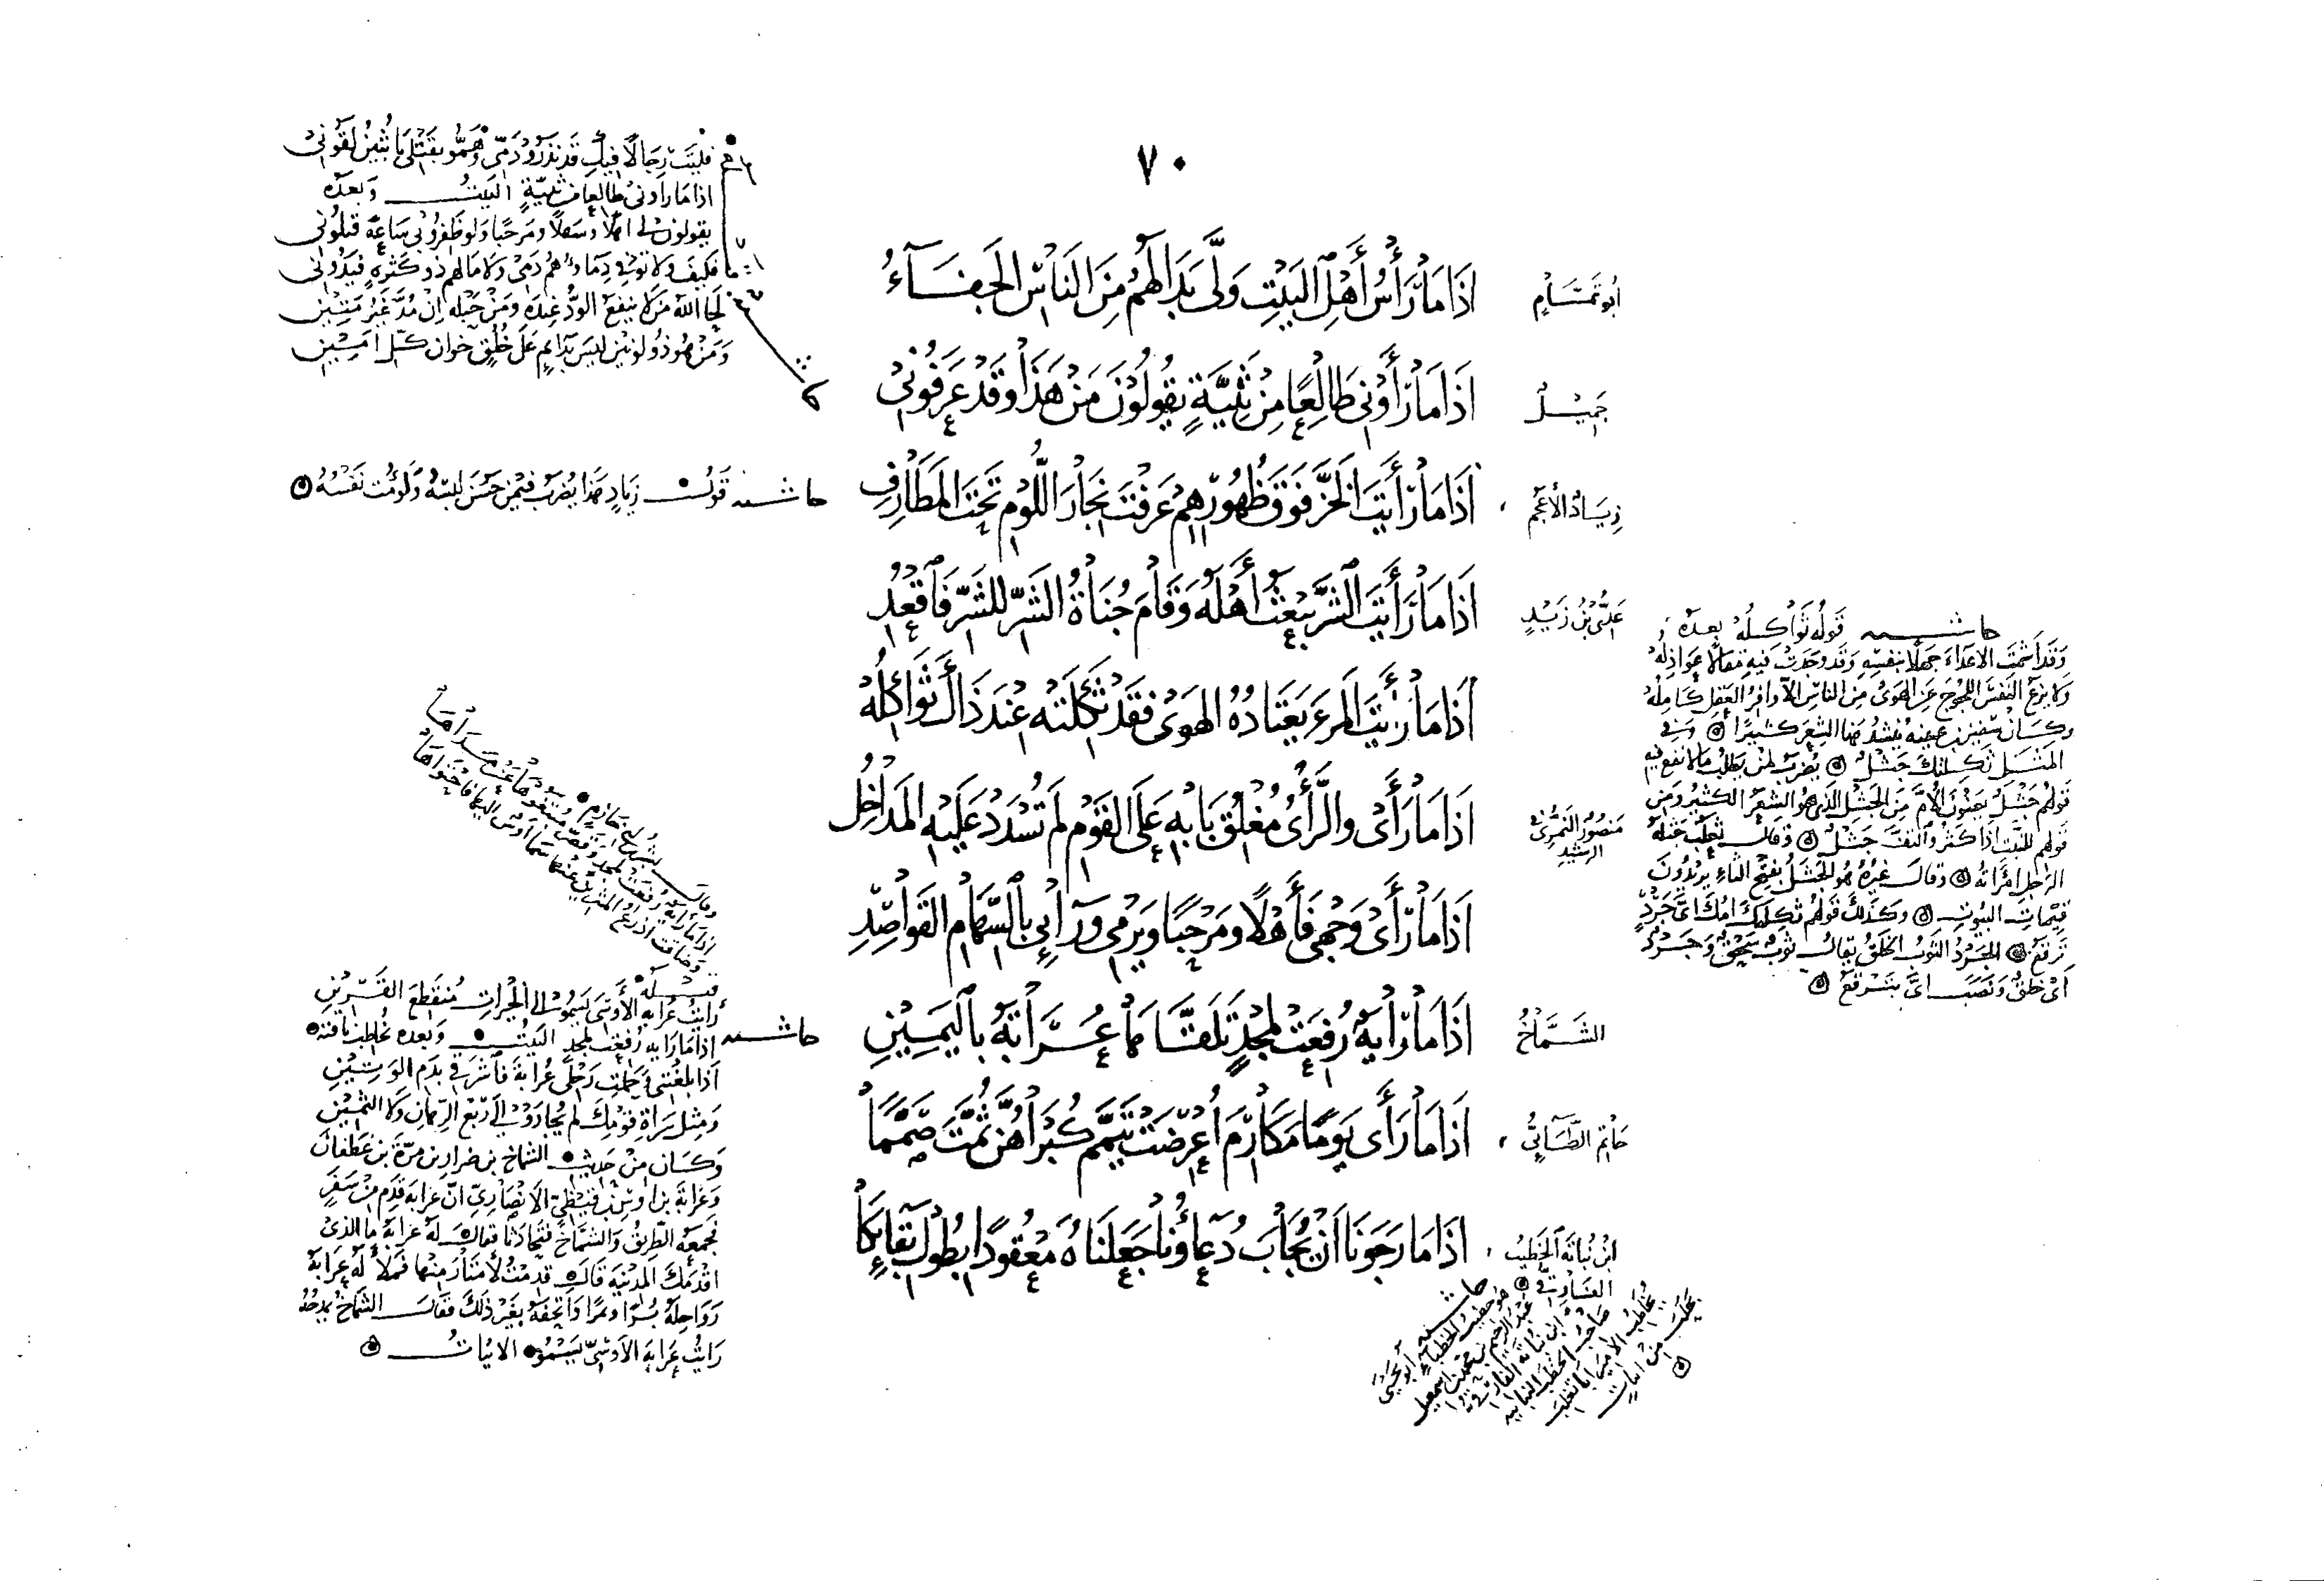 ٧٠
أبو تمام
اذا ما رأس أهل البيت ولى بدا لهم من الناس الجفاء
جميل
اذا ما رأوني طالعا من ثنية يقولون من هذا وقد عرفوني
زياد الأعجم
اذا ما رأيت الخز فوق ظهورهم عرفت نجار اللوم تحت المطارف
عدي بن زيد
اذا ما رأيت الشر يبعث أهله وقام جناة الشر للشر فاقعد
اذا ما رأيت المرء يعتاده الهوى فقد ثكلته عند ذاك ثواكله
منصور النمري
الرشيد
اذا ما رأى والرأي مغلق بابه على القوم لم تسدد عليه المداخل
اذا ما رأى وجهي فأهلا ومرحبا ويرمي ورائي بالسهام القواصد
الشماخ
اذا ما راية رفعت لمجد تلقاها عرابة باليمين
حاتم الطائي
اذا ما رأى يوما مكارم أعرضت تيمم كبراهن ثمت صمما
ابن نباتة الخطيب
الفارقي
اذا ما رجونا ان يجاب دعاؤنا جعلناه معقودا بطول بقائكا
فليت رجالا فيك قد نذروا دمي وهموا بقتلي يا بثين لقوني
اذا ما رأوني طالعا من ثنية البيت وبعده
يقولون لي اهلا وسهلا ومرحبا ولو ظفروا بي ساعة قتلوني
فكيف ولا توفي دماؤهم دمي ولا مالهم ذو كثرة فيدوني
لحا الله من لا ينفع الود عنده ومن حبله ان مد غير متين
ومن هو ذو لونين ليس بدائم على خلق خوان كل امين
حاشية قول زياد هذا يضرب فيمن حسن لبسه ولؤمت نفسه
حاشية قوله ثواكله بعده
وقد أشمت الاعداء جهلا بنفسه وقد وجدت فيه مقالا عواذله
ولا يزع النفس اللجوج عن الهوى من الناس الا وافر العقل كامله
وكان سفين بن عيينه ينشد هذا الشعر كثيرا وفي
المثل ثكلتك جثل يضرب لمن يطلب ما لا نفع فيه
قولهم جثل يعنون الام من الجثل الذي هو الشعر الكثير ومن
قولهم للنبت اذا كثر والتف جثل وقال ثعلب جثلة
الرجل امرأته وقال غيره هو الجثل بفتح الثاء يريدون
قيمات البيوت وكذلك قولهم ثكلتك امك اي جرد
ترقع الجرد الثوب الخلق يقال ثوب سحق وجرد
اي خلق ونصب اي بترقع
وقال بشر بن ابي خازم
اذا ما راية رفعت لمجد
وضاقت اذرع المثرين عنها سما اوس اليها فاحتواها
قبله
رايت عرابة الأوسي يسمو الى الخيرات منقطع القرين
حاشية اذا ما راية رفعت لمجد البيت وبعده يخاطب ناقته
اذا بلغتني وحملت رحلي عرابة فاشرقي بدم الوتين
ومثل سراة قومك لم يجاروا الى ربع الرهان ولا الثمين
وكان من حديث الشماخ بن ضرار بن مرة بن غطفان
وعرابة بن اوس بن قيظي الانصاري ان عرابة قدم من سفر
فجمعه الطريق والشماخ فتحادثا فقال له عرابة ما الذي
اقدمك المدينة قال قدمت لأمتار منها فملأ له عرابة
رواحله برا وتمرا واتحفه بغير ذلك فقال الشماخ يمدحه
رايت عرابة الأوسي يسمو الابيات
حاشية
هو خطيب الخطباء ابو يحيى
عبد الرحيم بن محمد بن اسمعيل
ابن نباتة الفارقي
صاحب الخطب النباتية
يخاطب الامير ابا تغلب
من ابيات